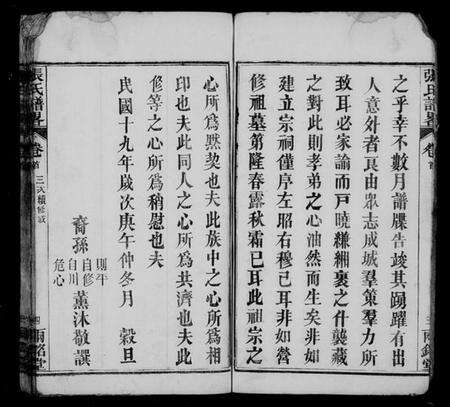 張氏譜畧
卷首
三
兩銘堂
之乎幸不數月譜牒告竣其踴躍有出
人意外者良由眾志成城羣策羣力所
致耳必家諭而戶曉緗裹之什襲藏
之對此則孝弟之心油然而生矣非如
建立宗祠僅序左昭右穆已耳非如營
修祖墓第隆春露秋霜已耳此祖宗之
心所為默契也夫此族中之心所為相
印也夫此同人之心所為共濟也夫此
修等之心所為稍慰也夫
民國十九年歲次庚午仲冬月 穀旦
裔孫
則平
自修
自川
危心
薰沐敬譔
張氏譜畧
卷首
三六續修敘
四
兩銘堂